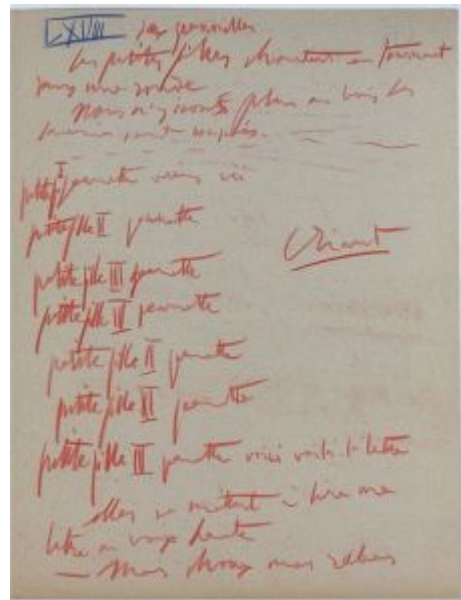 LXVIII
les petites filles chantent en tournant
dans une ronde
Nous n'irons plus au bois les
lauriers sont coupés.
petite I jeannette viens ici
petite fille II jeannette
petite fille III jeannette
petite fille IV jeannette
petite fille V jeannette
petite fille VI jeannette
petite fille jeannette voici voilà la lettre
elles se mettent à lire une
lettre à voix haute
— Mes choux mes